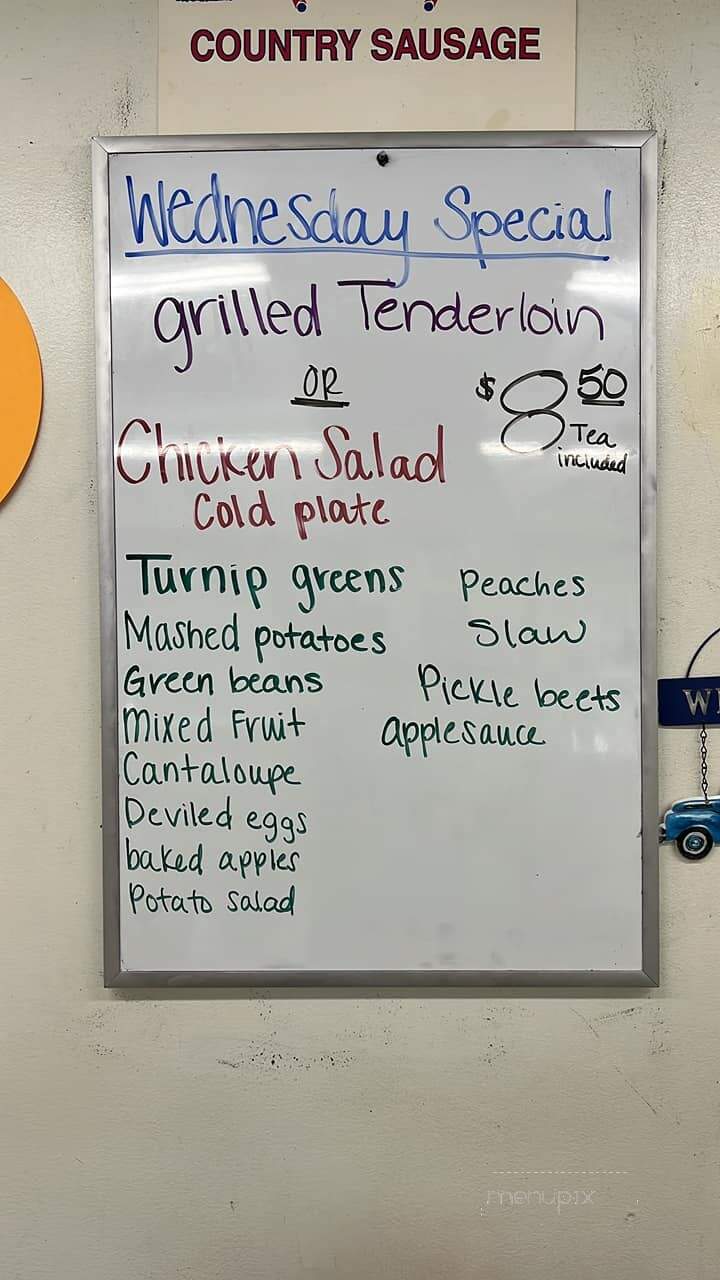 COUNTRY SAUSAGE
Wednesday Special
grilled Tenderloin
OR
$8 50
Tea
included
Chicken Salad
Cold plate
Turnip greens
Mashed potatoes
Green beans
Mixed Fruit
Cantaloupe
Deviled eggs
baked apples
Potato salad
Peaches
Slaw
Pickle beets
applesauce
menupix